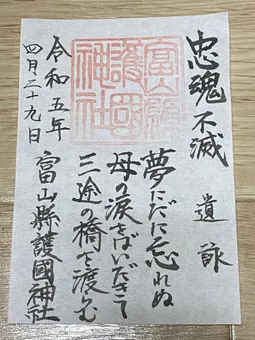 忠魂不滅
遺詠
夢にだに忘れぬ
母の涙をばいだきて
三途の橋を渡らむ
富山縣護國神社
富山縣護國神社
令和五年
四月二十九日